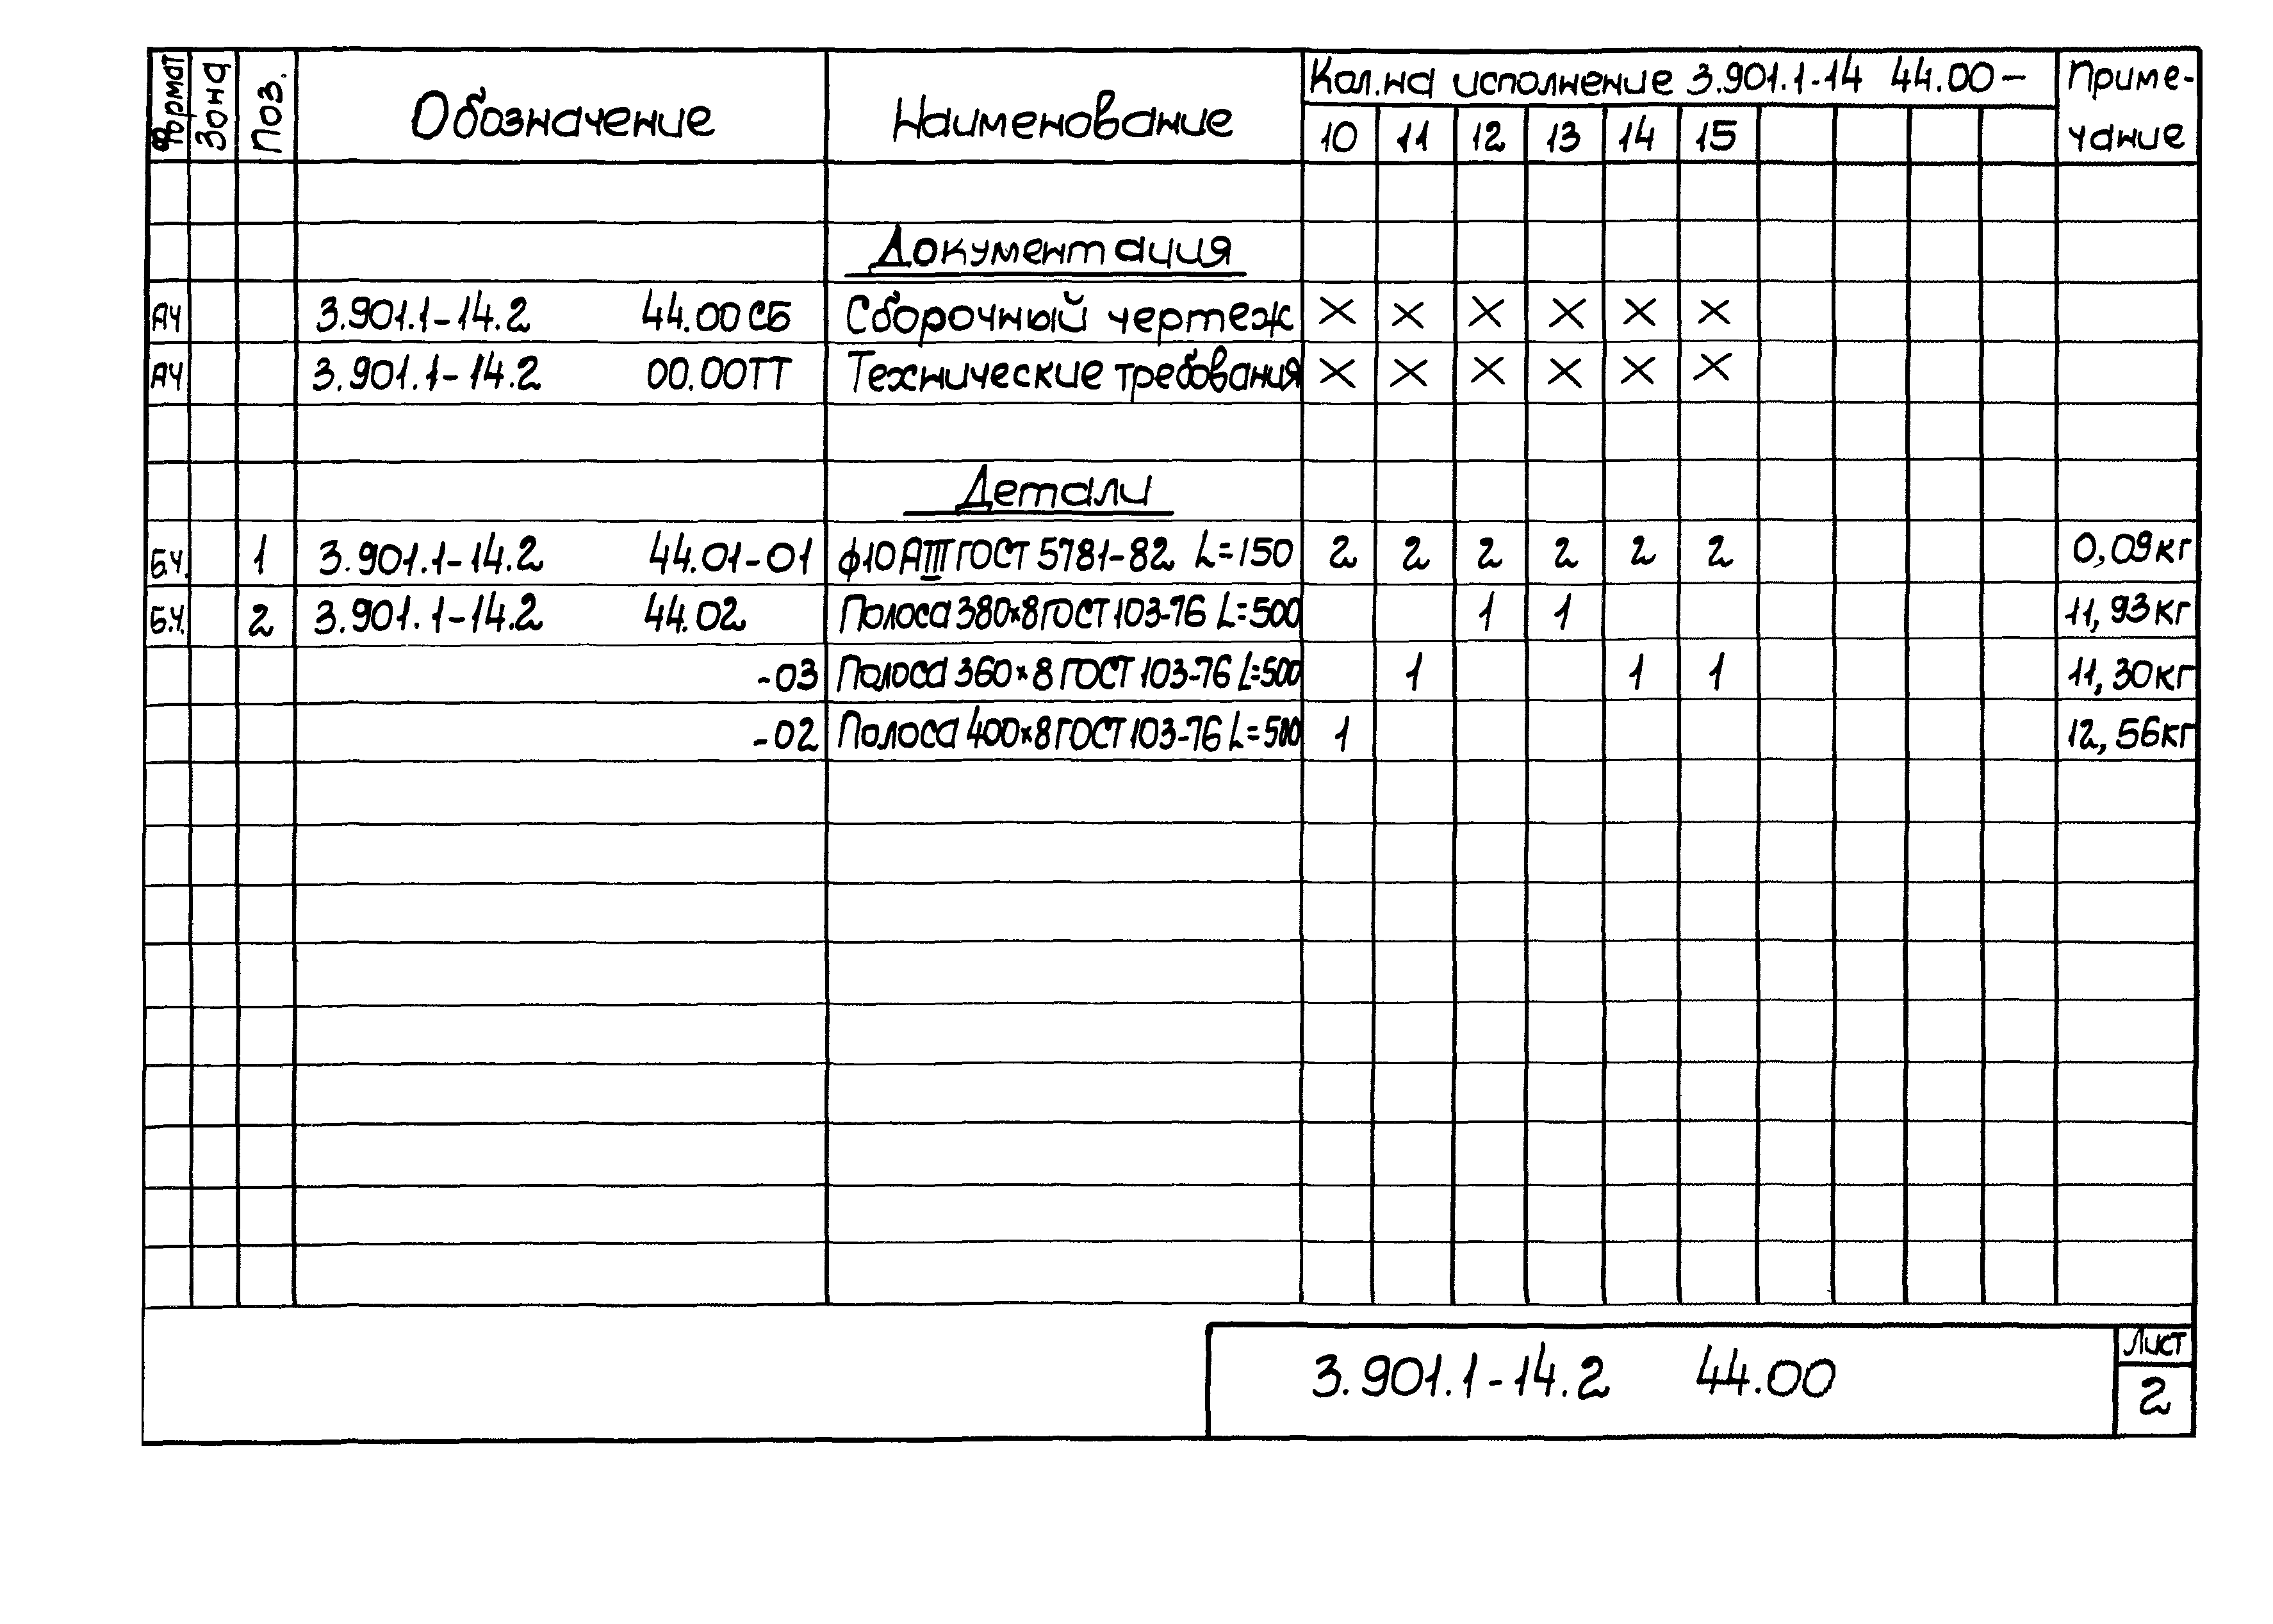 Формат Зона Поз. Обозначение Наименование Кол.на исполнение 3.901.1-14 44.00- Приме-
чание
10 11 12 13 14 15
Документация
А4 3.901.1-14.2 44.00СБ Сборочный чертеж × × × × × ×
А4 3.901.1-14.2 00.00ТТ Технические требования × × × × × ×
Детали
Б.Ч. 1 3.901.1-14.2 44.01-01 ф10АIII ГОСТ 5781-82 L=150 2 2 2 2 2 2 0,09кг
Б.Ч. 2 3.901.1-14.2 44.02 Полоса 380×8 ГОСТ 103-76 L=500 1 1 11,93кг
-03 Полоса 360×8 ГОСТ 103-76 L=500 1 1 1 11,30кг
-02 Полоса 400×8 ГОСТ 103-76 L=500 1 12,56кг
3.901.1-14.2 44.00
Лист
2